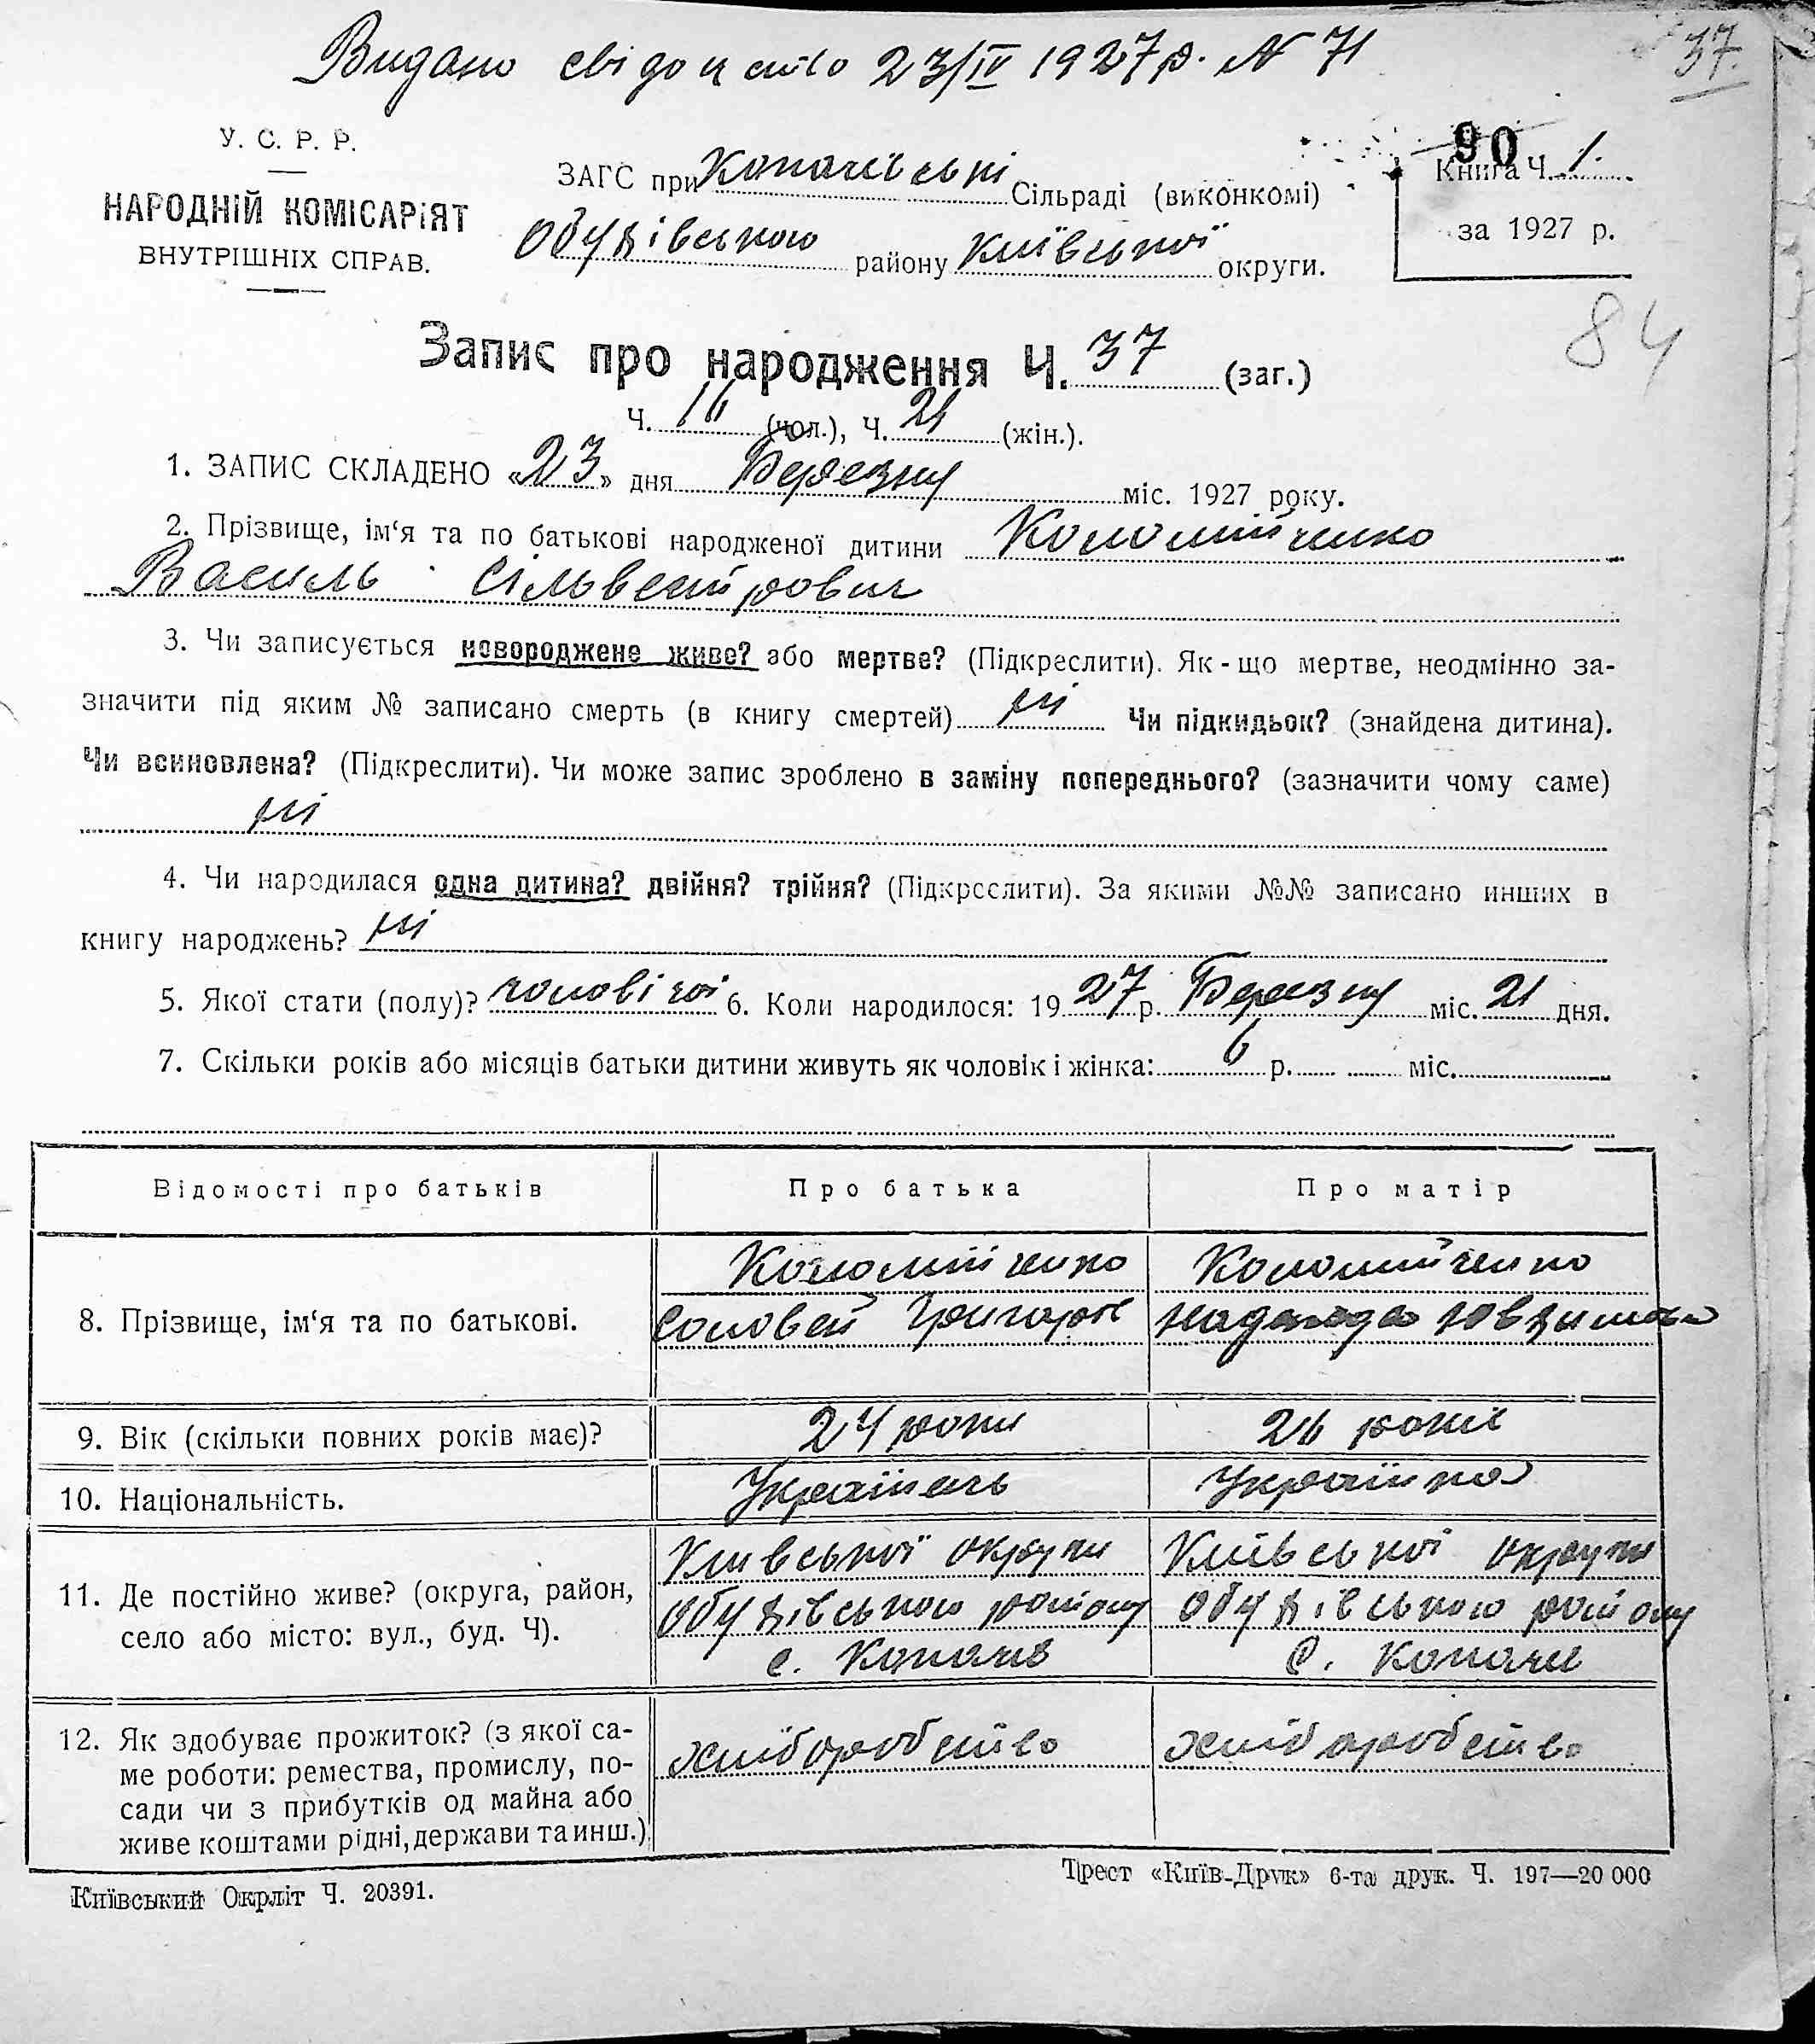 Видано свідоцтво 23/IV 1927 р. № 71
37.
У. С. Р. Р.
НАРОДНІЙ КОМІСАРІЯТ
ВНУТРІШНІХ СПРАВ.
ЗАГС при Копачівські Сільраді (виконкомі)
Обухівського району Київської округи.
90
Книга Ч. 1.
за 1927 р.
84
Запис про народження Ч. 37 (заг.)
Ч. 16 (чол.), Ч. 21 (жін.).
1. ЗАПИС СКЛАДЕНО «23» дня Березня міс. 1927 року.
2. Прізвище, ім‘я та по батькові народженої дитини Коломійченко
Василь Сільвестрович
3. Чи записується новороджене живе? або мертве? (Підкреслити). Як-що мертве, неодмінно за-
значити під яким № записано смерть (в книгу смертей) ні Чи підкидьок? (знайдена дитина).
Чи всиновлена? (Підкреслити). Чи може запис зроблено в заміну попереднього? (зазначити чому саме)
ні
4. Чи народилася одна дитина? двійня? трійня? (Підкреслити). За якими №№ записано инших в
книгу народжень? ні
5. Якої стати (полу)? чоловічої 6. Коли народилося: 1927 р. Березня міс. 21 дня.
7. Скільки років або місяців батьки дитини живуть як чоловік і жінка: 6 р. міс.
Відомості про батьків Про батька Про матір
8. Прізвище, ім‘я та по батькові.
Коломійченко
Соловей Григорів
Коломийченко
Надежда
9. Вік (скільки повних років має)? 24 роки 26 років
10. Національність. Українець Українка
11. Де постійно живе? (округа, район,
село або місто: вул., буд. Ч).
Киівської округи
Обухівського району
с. Копачів
Київської округи
Обухівського району
с. Копачи
12. Як здобуває прожиток? (з якої са-
ме роботи: ремества, промислу, по-
сади чи з прибутків од майна або
живе коштами рідні, держави та инш.)
хліборобство
хліборобство
Київський Окрліт Ч. 20391.
Трест «Київ-Друк» 6-та друк. Ч. 197—20 000